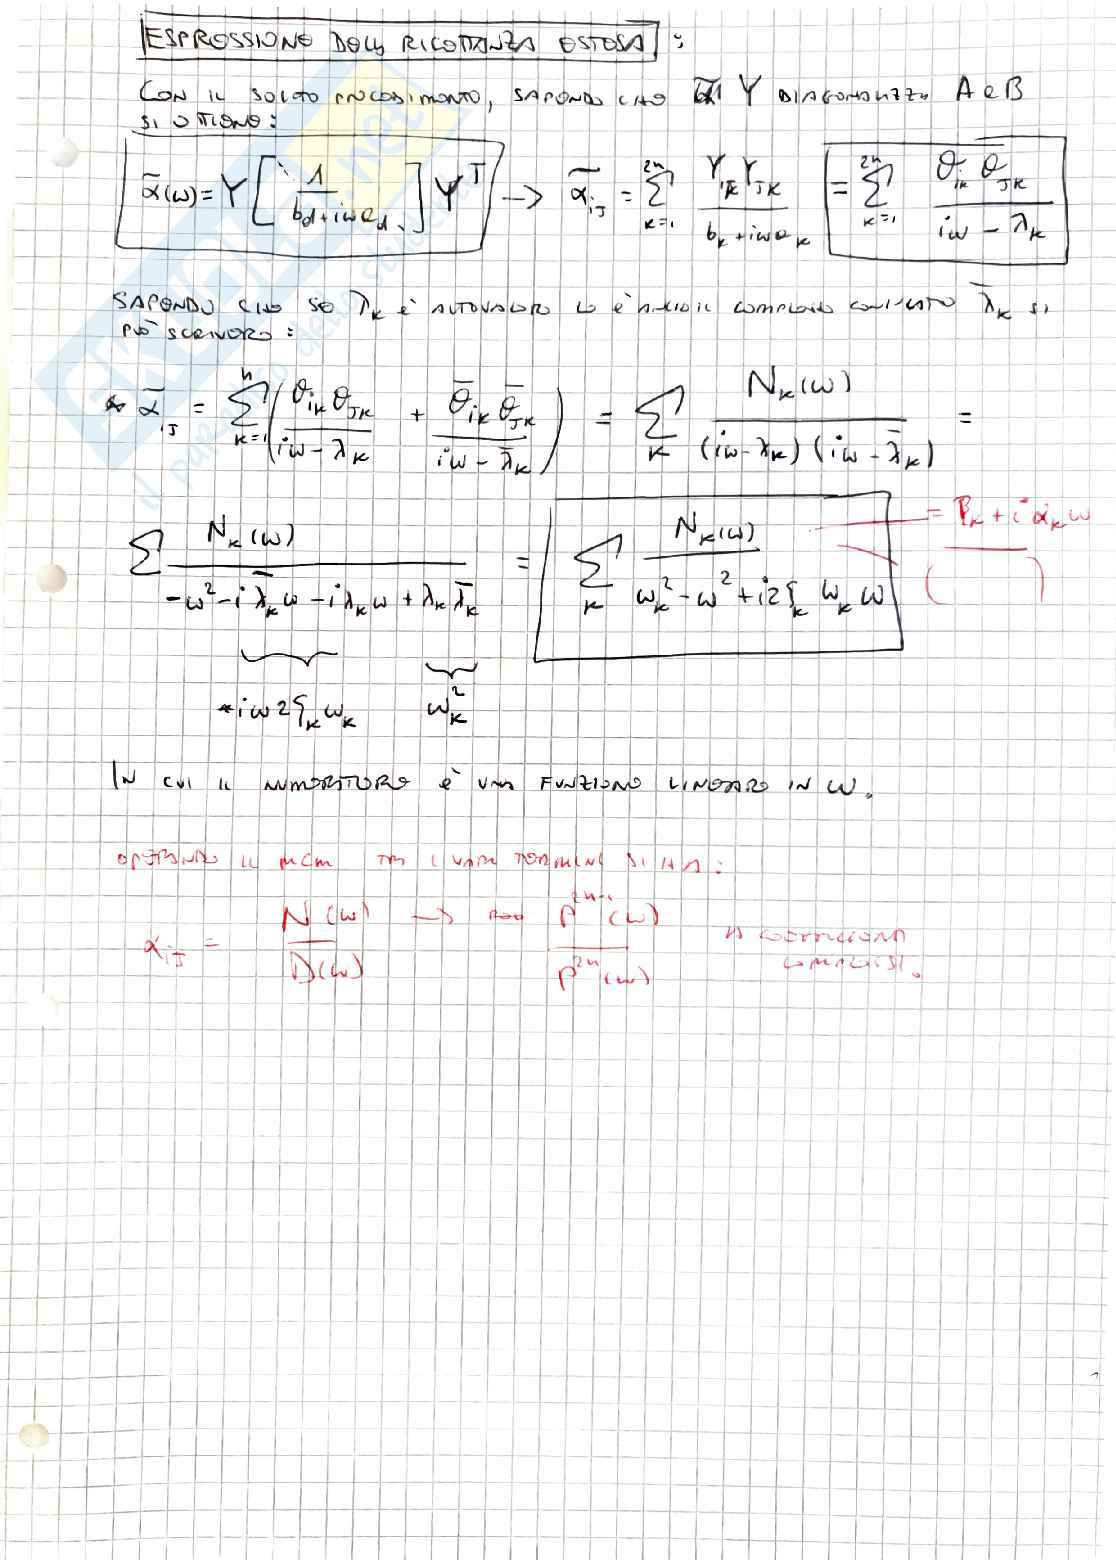 ESPRESSIONE DELLA RICETTANZA ESTESA :
CON IL SOLITO PROCEDIMENTO, SAPENDO CHE Y DIAGONALIZZA A e B
SI OTTIENE:
α̃(ω) = Y [ 1 / (b_d + iω a_d) ] Y^T → α̃_ij = Σ_{k=1}^{2n} Y_ik Y_jk / (b_k + iω a_k) = Σ_{k=1}^{2n} θ_ik θ_jk / (iω - λ_k)
SAPENDO CHE SE λ_k è AUTOVALORE LO è ANCHE IL COMPLESSO CONIUGATO λ̄_k SI
PUÒ SCRIVERE:
α̃_ij = Σ_{k=1}^{n} ( θ_ik θ_jk / (iω - λ_k) + θ̄_ik θ̄_jk / (iω - λ̄_k) ) = Σ_k N_k(ω) / (iω - λ_k)(iω - λ̄_k) =
Σ N_k(ω) / (-ω² - i λ̄_k ω - i λ_k ω + λ_k λ̄_k) = Σ_k N_k(ω) / (ω_k² - ω² + i2ξ_k ω_k ω) = β_k + i α_k ω / ( )
iω2ξ_k ω_k ω_k²
IN CUI IL NUMERATORE è UNA FUNZIONE LINEARE IN ω.
OPERANDO IL mcm TRA I VARI TERMINI SI HA:
α_ij = N(ω) / D(ω) → P^{2n-1}(ω) / P^{2n}(ω) A COEFFICIENTI
COMPLESSI.
EHUB.net
il paradiso dello studente